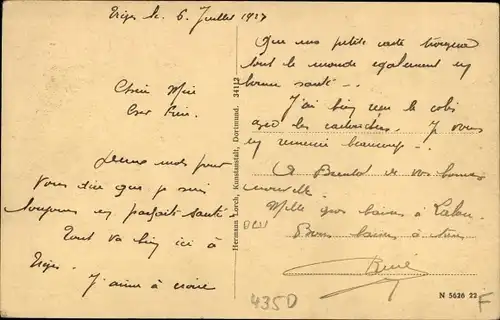 le 6 Juillet 1927
Chère Mère
Cher Père
Deux mots pour
vous dire que je suis
toujours en parfaite santé
Tout va bien ici à
J'aime à croire
Que ma petite carte trouvera
tout le monde également en
bonne santé
J'ai bien reçu le colis
avec les Je vous
en remercie beaucoup
A Bientôt de vos bonnes
nouvelles
Mille gros baisers à
Bons baisers à tous
René
Hermann Lorch, Kunstanstalt, Dortmund. 34112
435D
N 5626 22
F